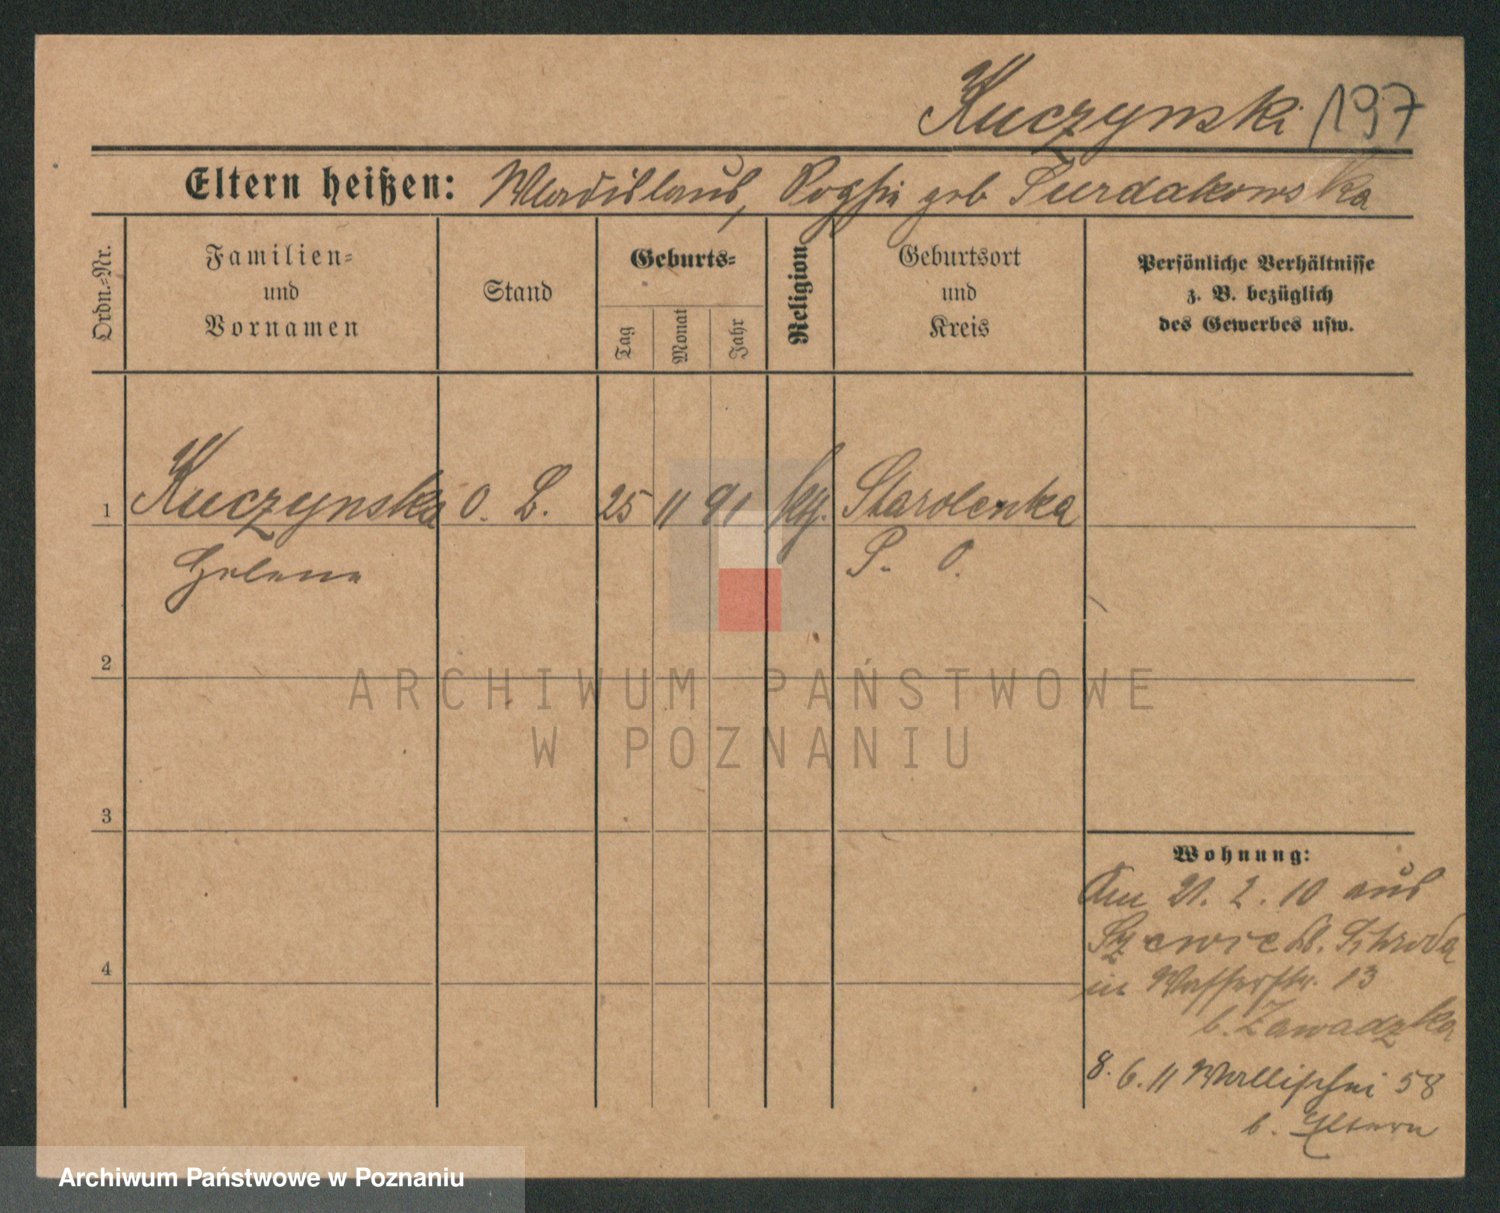 Kuczynski /197
Eltern heißen: Wladislaus, geb Turdakowska
Ordn.-Nr.
Familien-
und
Vornamen
Stand
Geburts-
Tag
Monat
Jahr
Religion
Geburtsort
und
Kreis
Persönliche Verhältnisse
z. B. bezüglich
des Gewerbes usw.
1 Kuczynska O. L. 25 11 91 kth. Starolenka
Helene P. O.
2
3
4
ARCHIWUM PAŃSTWOWE
W POZNANIU
Wohnung:
Am 21. 2. 10 aus
Schroda
in Wasserstr. 13
b. Zawadzka
8. 6. 11 Wallischei 58
b. Eltern
Archiwum Państwowe w Poznaniu